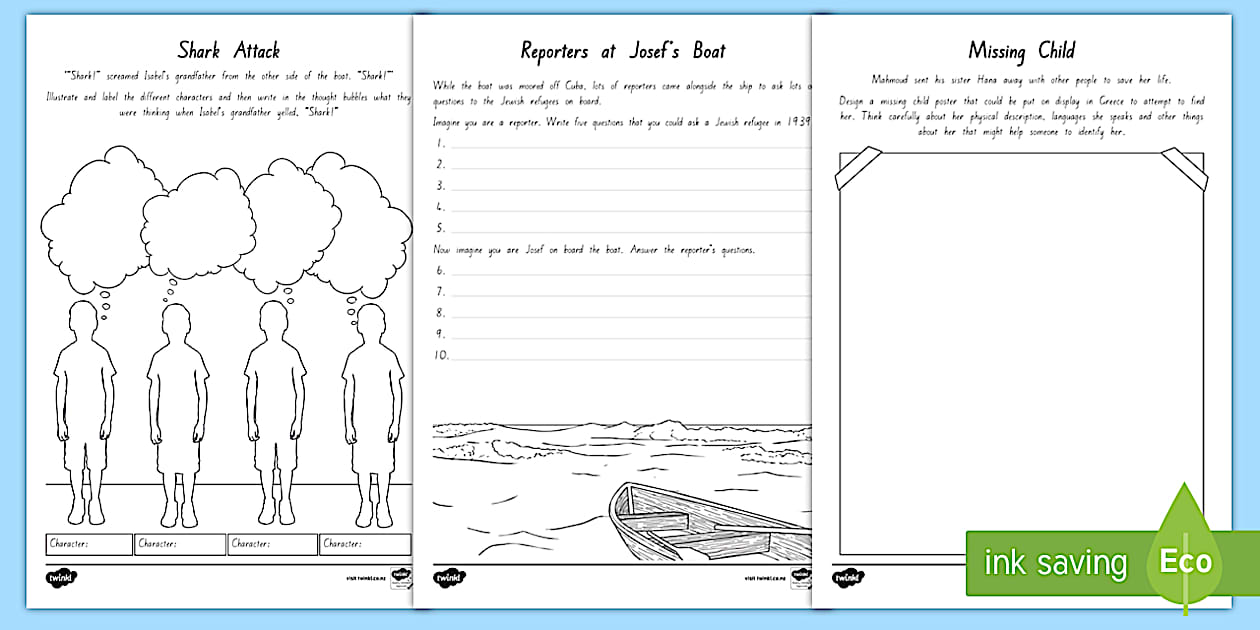 Shark Attack
""Shark!" screamed Isabel's grandfather from the other side of the boat. "Shark!""
Illustrate and label the different characters and then write in the thought bubbles what they
were thinking when Isabel's grandfather yelled, "Shark!"
Character:
Character:
Character:
Character:
twinkl
visit twinkl.co.nz
twinkl
Reporters at Josef's Boat
While the boat was moored off Cuba, lots of reporters came alongside the ship to ask lots o
questions to the Jewish refugees on board.
Imagine you are a reporter. Write five questions that you could ask a Jewish refugee in 1939
1.
2.
3.
4.
5.
Now imagine you are Josef on board the boat. Answer the reporter's questions.
6.
7.
8.
9.
10.
twinkl
visit twinkl.co.nz
twinkl
Missing Child
Mahmoud sent his sister Hana away with other people to save her life.
Design a missing child poster that could be put on display in Greece to attempt to find
her. Think carefully about her physical description, languages she speaks and other things
about her that might help someone to identify her.
twinkl
ink saving
Eco